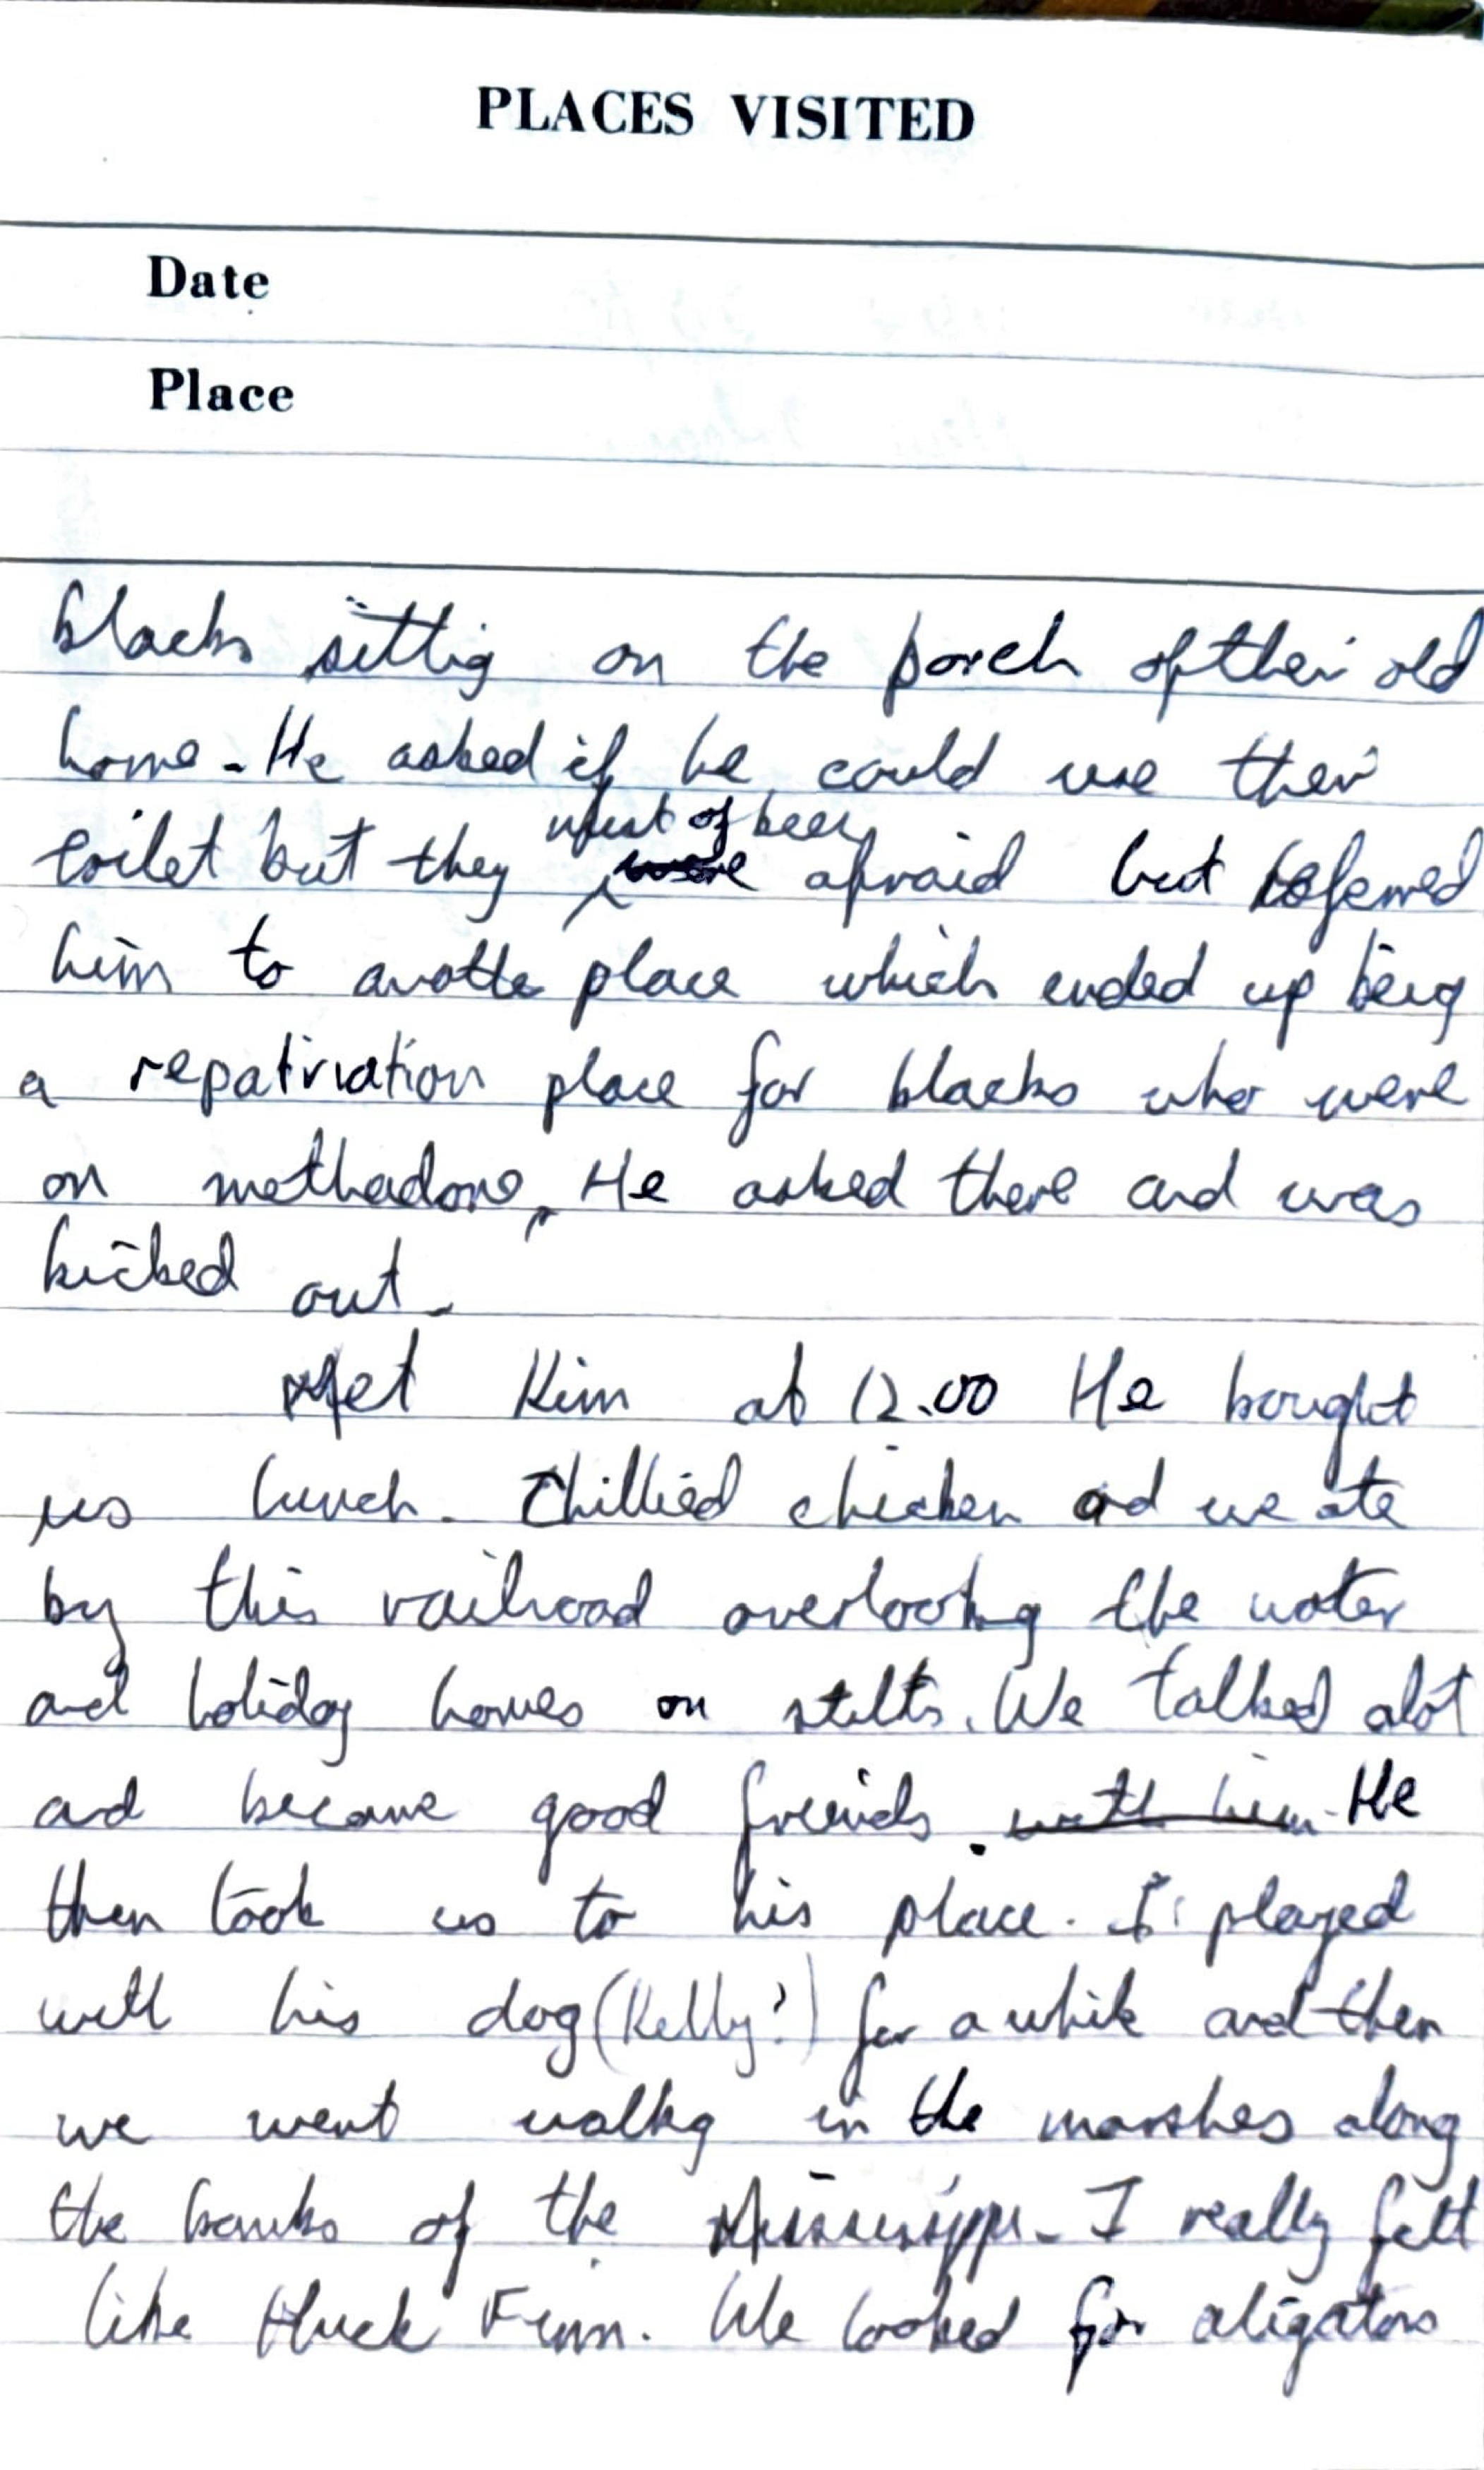 PLACES VISITED
Date
Place
blacks sittig on the porch of their old
home. He asked if he could use their
must of been
toilet but they were afraid but refered
him to anothe place which ended up being
a repatriation place for blacks who were
on methadone, He asked there and was
kicked out.
Met Kim at 12.00 He bought
us lunch. Chillied chicken and we ate
by this railroad overlooking the water
and holiday homes on stilts. We talked alot
and became good friends. with him. He
then took us to his place. I played
with his dog (Kelly?) for a while and then
we went walkg in the marshes along
the banks of the Mississippi. I really felt
like Huck Finn. We looked for aligators